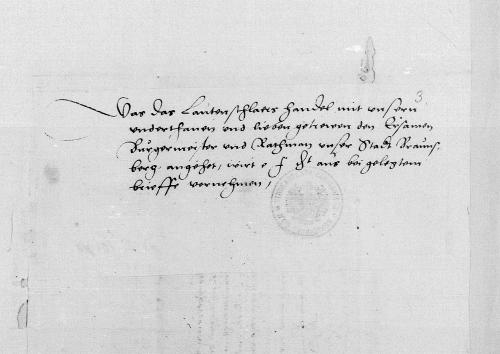 3
Was das Lautenschlaers Handel mit unsern
underthanen und lieben getrewen den Ersamen
Burgermeister und Rathman unser Stadt Brauns,
berg, angehet, wirt e f gt aus beigelegtem
brieffe vernehmen,